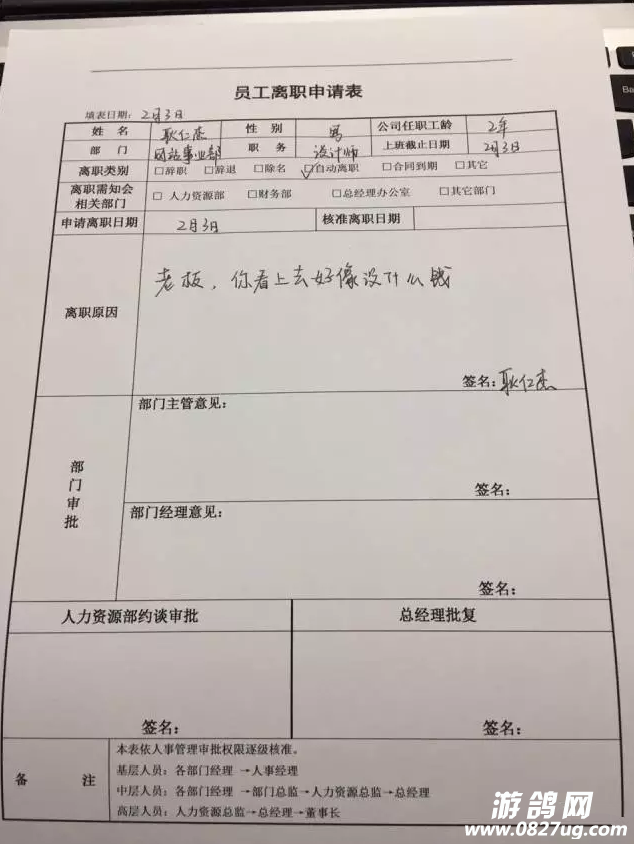 员工离职申请表
填表日期：2月3日
姓 名 耿仁杰 性 别 男 公司任职工龄 2年
部 门 网站事业部 职 务 设计师 上班截止日期 2月3日
离职类别 □辞职 □辞退 □除名 ☑自动离职 □合同到期 □其它
离职需知会
相关部门 □ 人力资源部 □财务部 □总经理办公室 □其它部门
申请离职日期 2月3日 核准离职日期
离职原因
老板，你看上去好像没什么钱
签名：耿仁杰
部门审批
部门主管意见：
签名：
部门经理意见：
签名：
人力资源部约谈审批 总经理批复
签名： 签名：
备 注
本表依人事管理审批权限逐级核准。
基层人员：各部门经理 →人事经理
中层人员：各部门经理 →部门总监→人力资源总监→总经理
高层人员：人力资源总监→总经理→董事长
Ba
游鸽网
www.0827ug.com